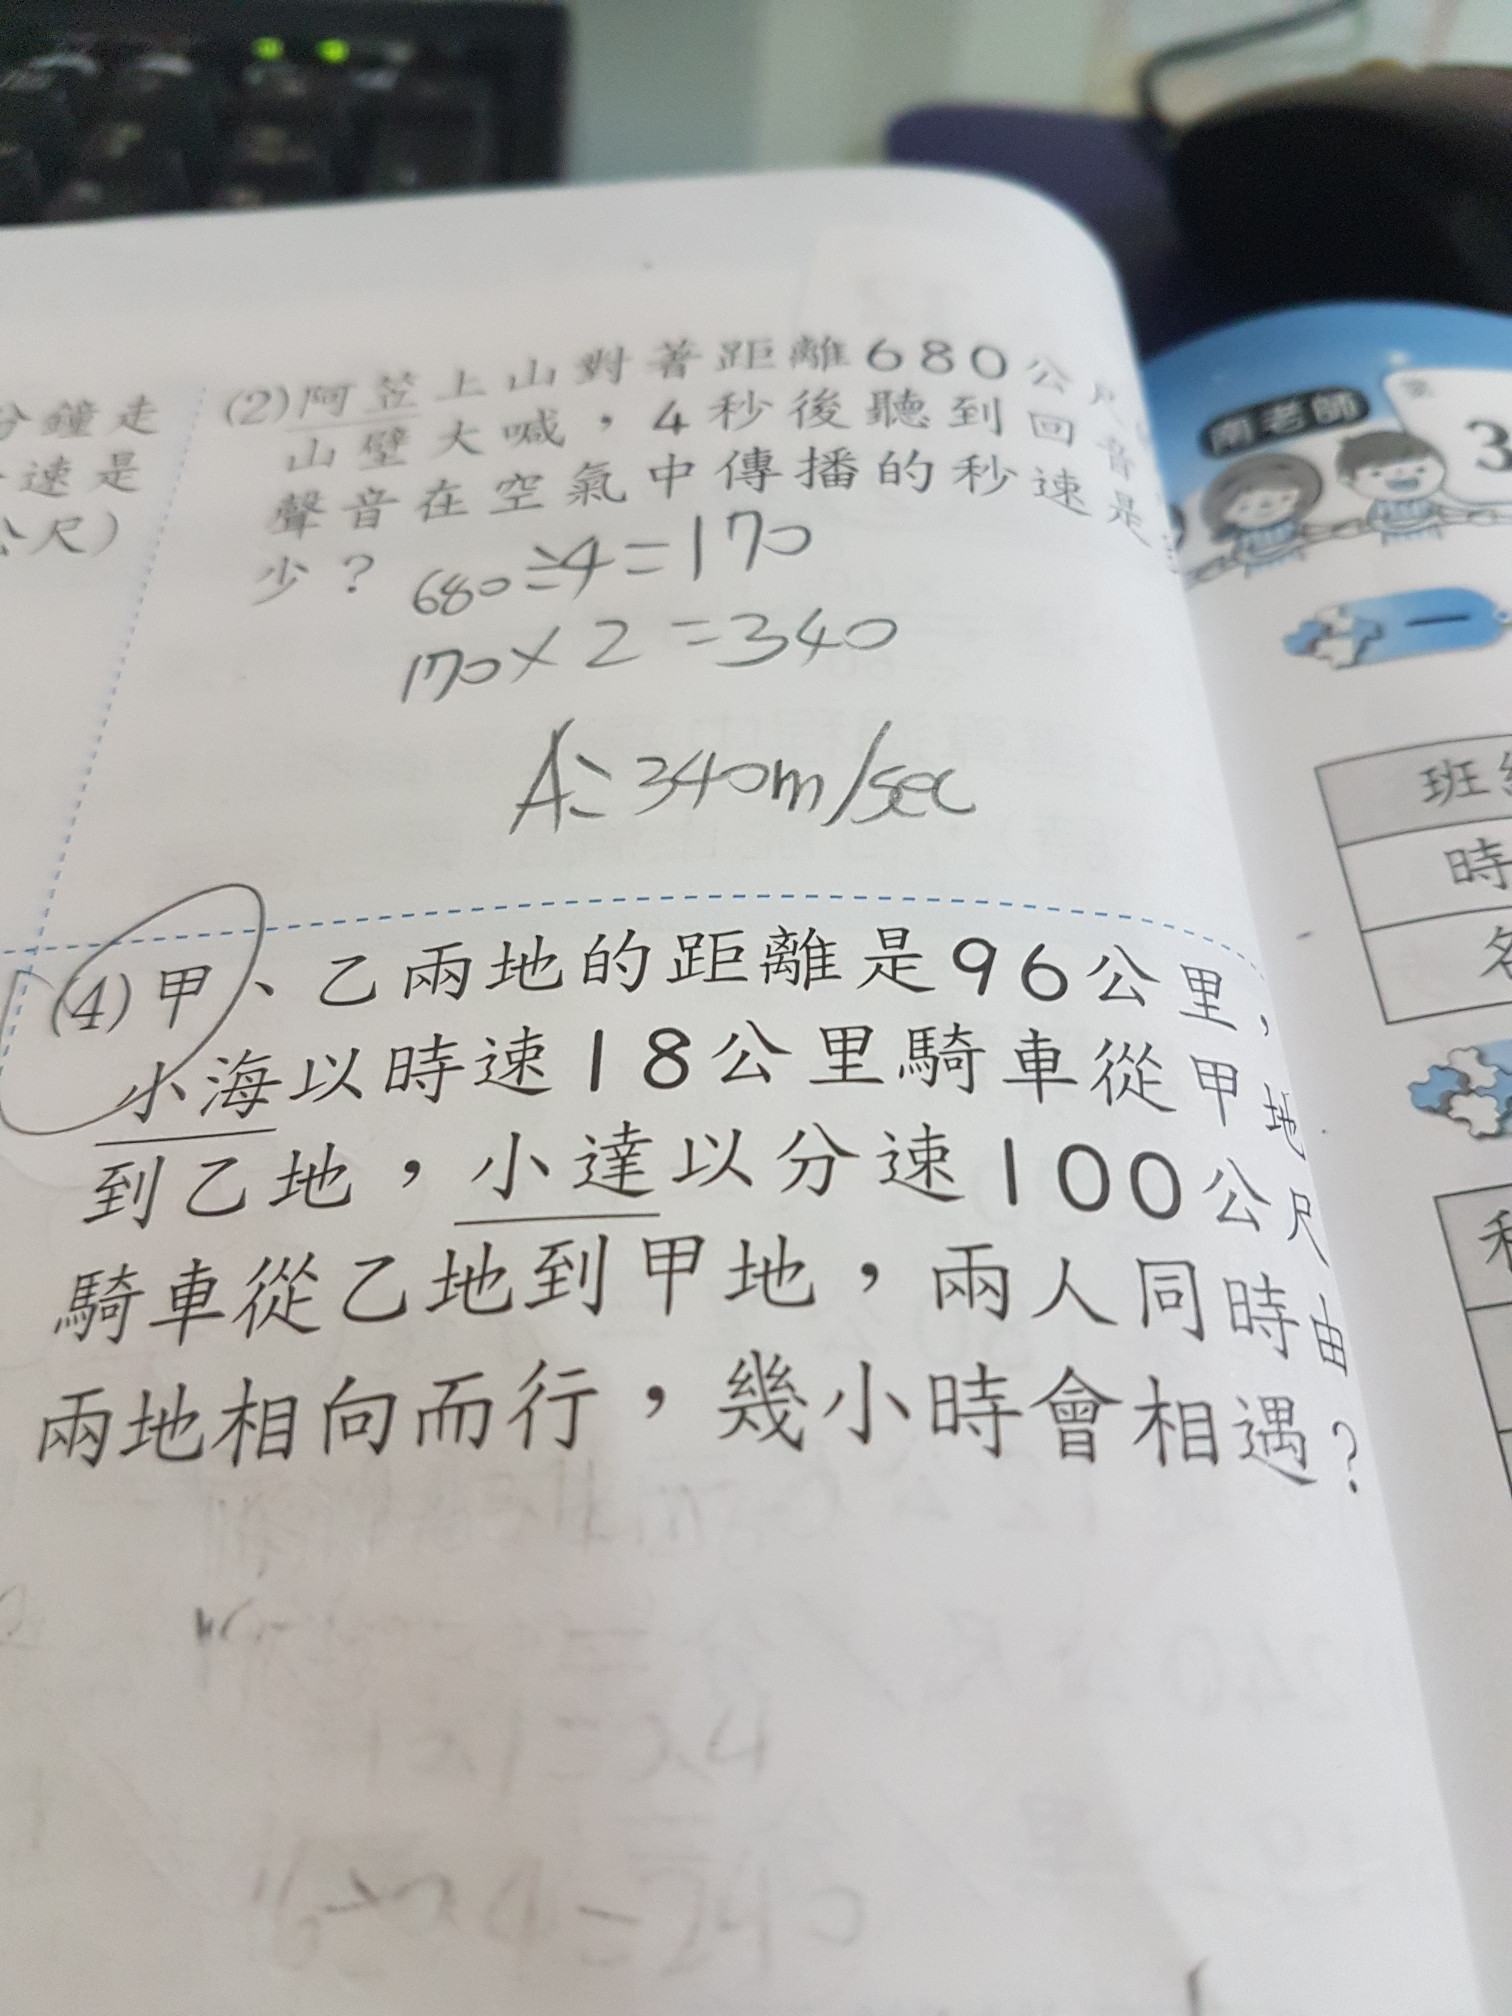 分鐘走
速是
公尺)
(2)阿笠上山對著距離680公尺
山壁大喊，4秒後聽到回音
聲音在空氣中傳播的秒速是
少？
680÷4=170
170×2=340
A:340m/sec
(4)甲、乙兩地的距離是96公里，
小海以時速18公里騎車從甲地
到乙地，小達以分速100公尺
騎車從乙地到甲地，兩人同時由
兩地相向而行，幾小時會相遇？
南老師
3
一
班
時
名